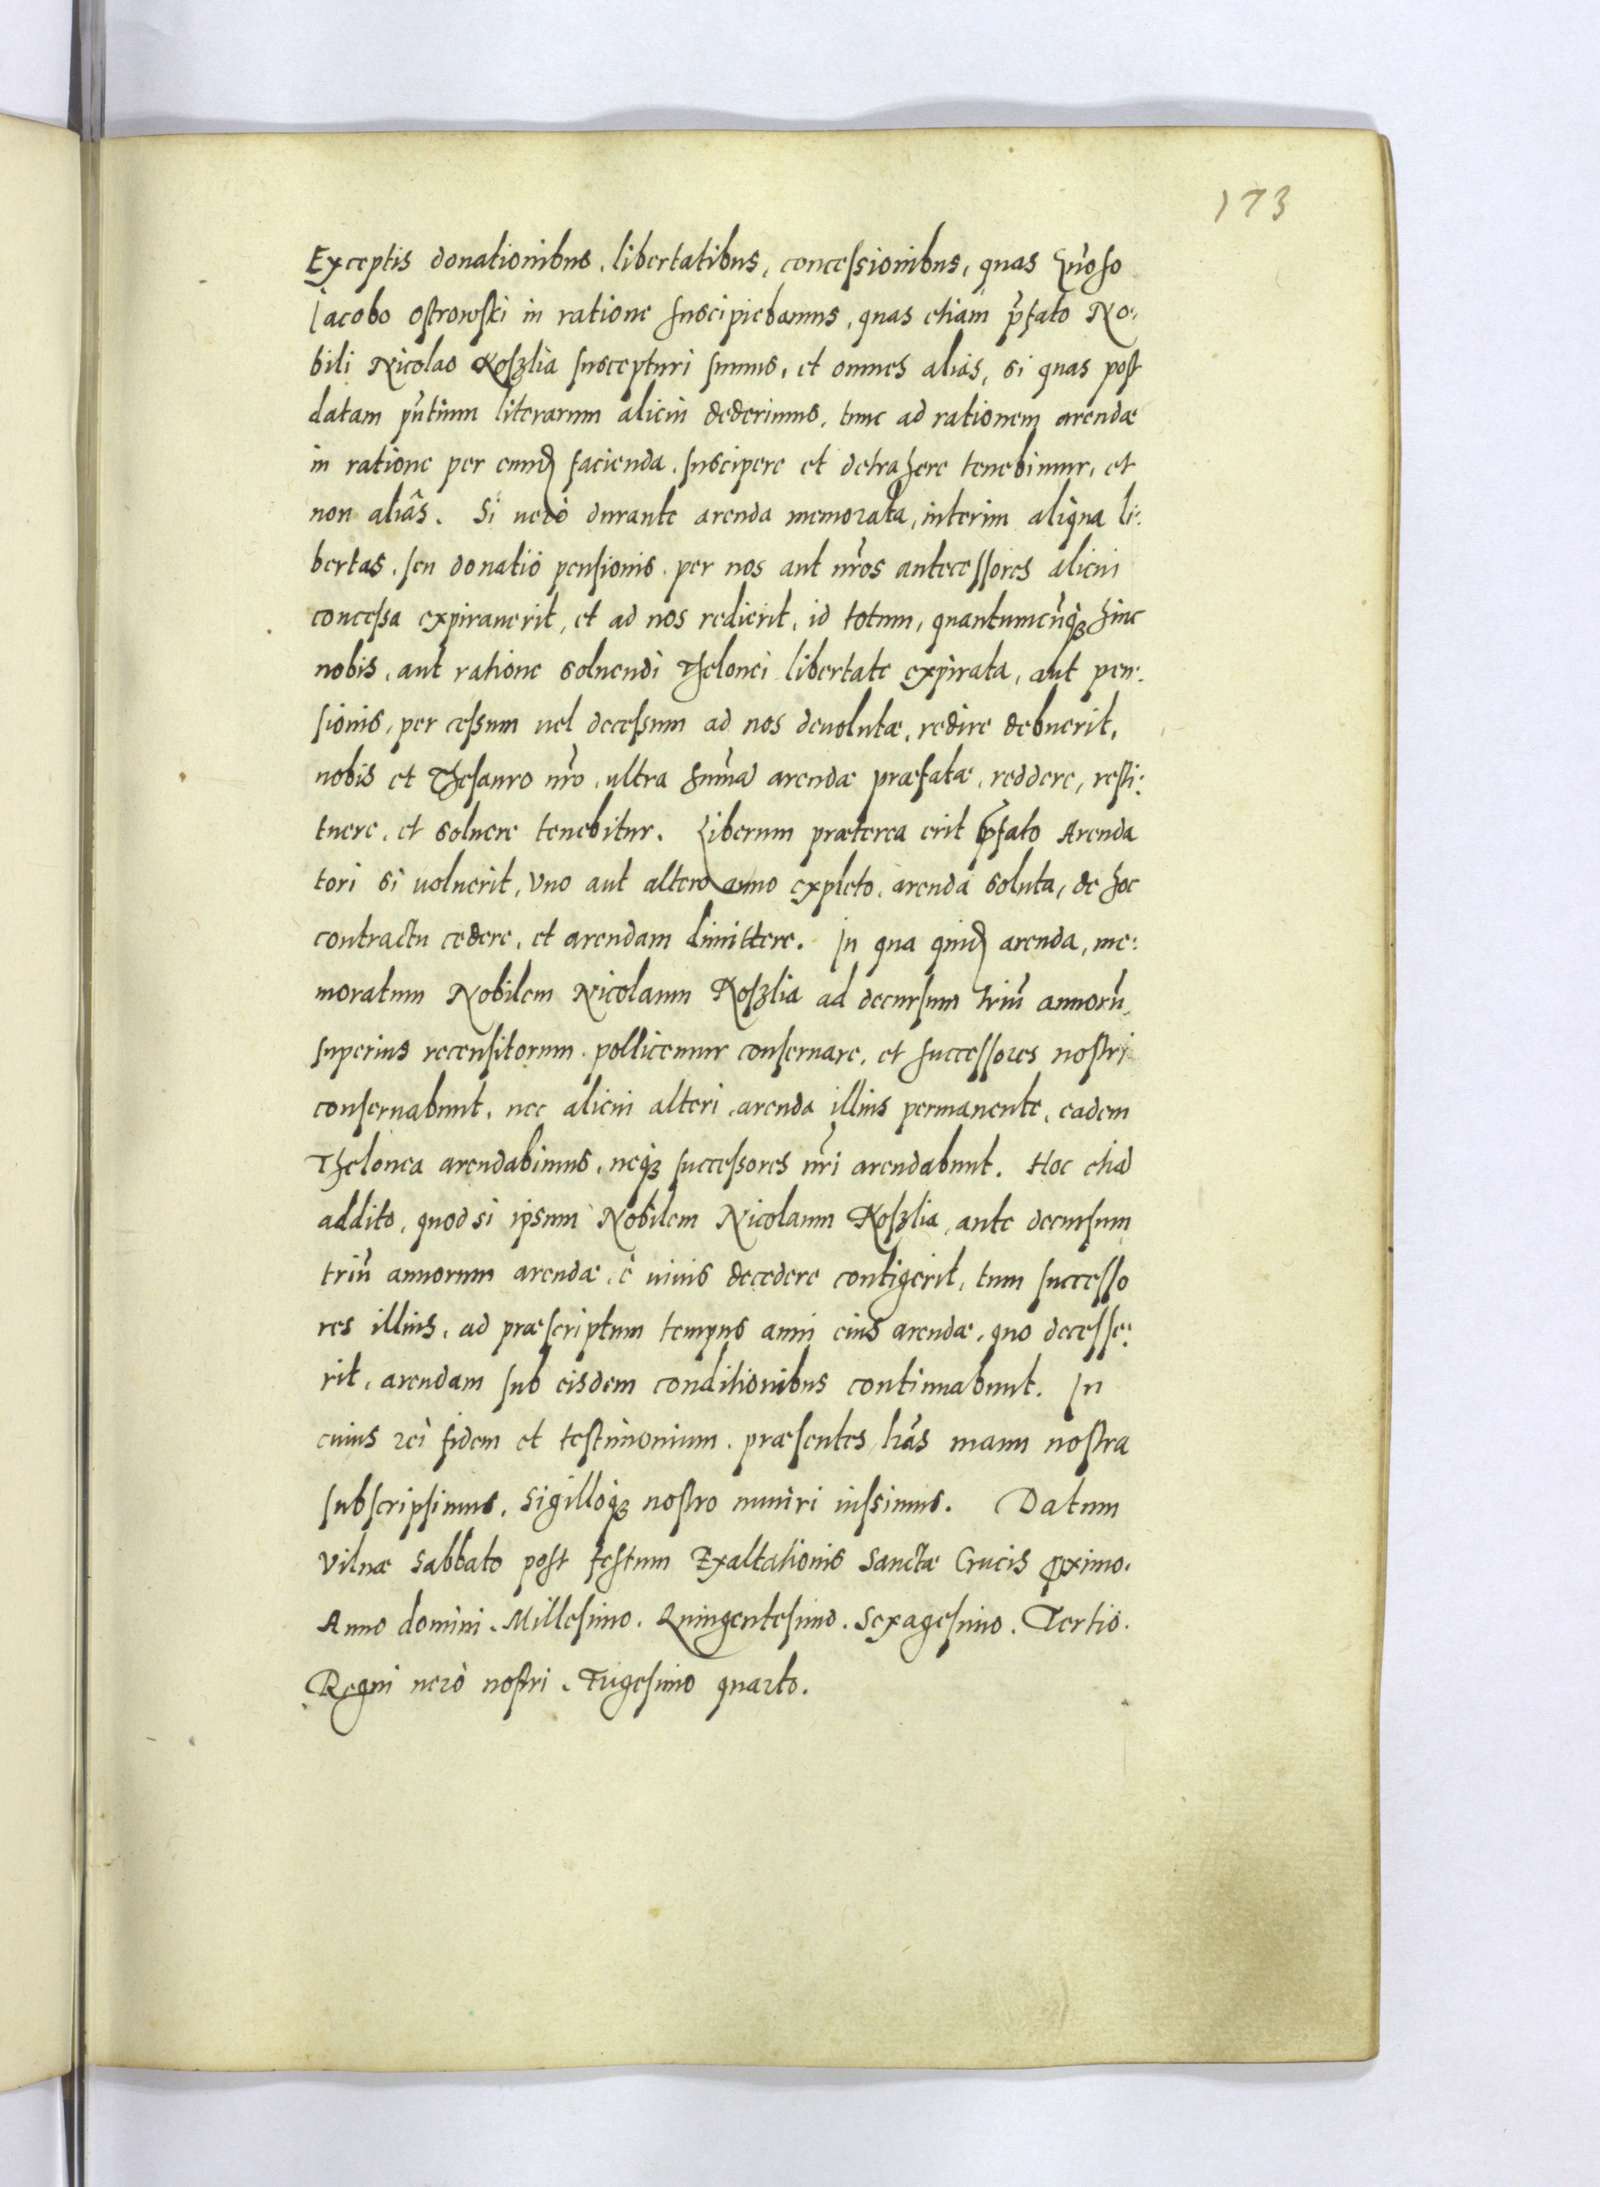 173
Exceptis donationibus, libertatibus, concessionibus, quas
Iacobo Ostrowski in ratione suscipiebamus, quas etiam p̃fato No:
bili Nicolao Koszlia suscepturi sumus, et omnes alias, si quas post
datam p̃ntium literarum alicui dederimus, tunc ad rationem arendæ
in ratione per eund facienda, suscipere et detrahere tenebimur, et
non aliâs. Si uerò durante arenda memorata, interim aliqua li:
bertas, seu donatio pensionis, per nos aut nr̃os antecessores alicui
concessa expirauerit, et ad nos redierit, id totum, quantumcũq3 hinc
nobis, aut ratione soluendi Thelonei libertate expirata, aut pen:
sionis, per cessum uel decessum ad nos deuolutæ, redire debuerit,
nobis et Thesauro nr̃o, ultra sum̃a arendæ præfatæ, reddere, resti:
tuere, et soluere tenebitur. Liberum præterea erit p̃fato Arenda
tori si uoluerit, Vno aut altero anno expleto, arenda soluta, de hoc
contractu cedere, et arendam dimittere. In qua quid arenda, me:
moratum Nobilem Nicolaum Koszlia ad decursum triũ annorũ,
superius recensitorum, pollicemur conseruare, et successores nostri
conseruabunt, nec alicui alteri, arenda illius permanente, eadem
Thelonea arendabimus, neq3 successores nr̃i arendabunt. Hoc etiã
addito, quod si ipsum Nobilem Nicolaum Koszlia, ante decursum
triũ annorum arendæ, è uiuis decedere contigerit, tum successo
res illius, ad præscriptum tempus anni eius arendæ, quo decesse:
rit, arendam sub eisdem conditionibus continuabunt. In
cuius rei fidem et testimonium, præsentes lr̃as manu nostra
subscripsimus, Sigilloq3 nostro muniri iussimus. Datum
Vilnæ Sabbato post festum Exaltationis Sanctæ Crucis ꝓximo.
Anno domini. Millesimo. Quingentesimo. Sexagesimo. Tertio.
Regni uerò nostri. Trigesimo quarto.